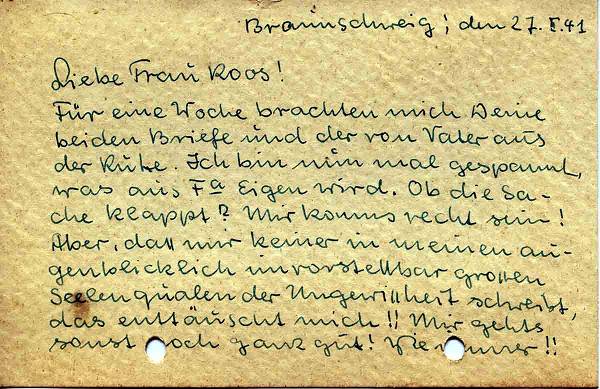 Braunschweig; den 27.I.41
Liebe Frau Koos!
Für eine Woche brachten mich Deine
beiden Briefe und der von Vater aus
der Ruhe. Ich bin nun mal gespannt,
was aus Fa Eigen wird. Ob die Sa-
che klappt? Mir konns recht sein!
Aber, dass mir keiner in meinen au-
genblicklich unvorstellbar grossen
Seelenqualen der Ungewissheit schreibt,
das enttäuscht mich!! Mir gehts
sonst noch ganz gut! Wie immer!!